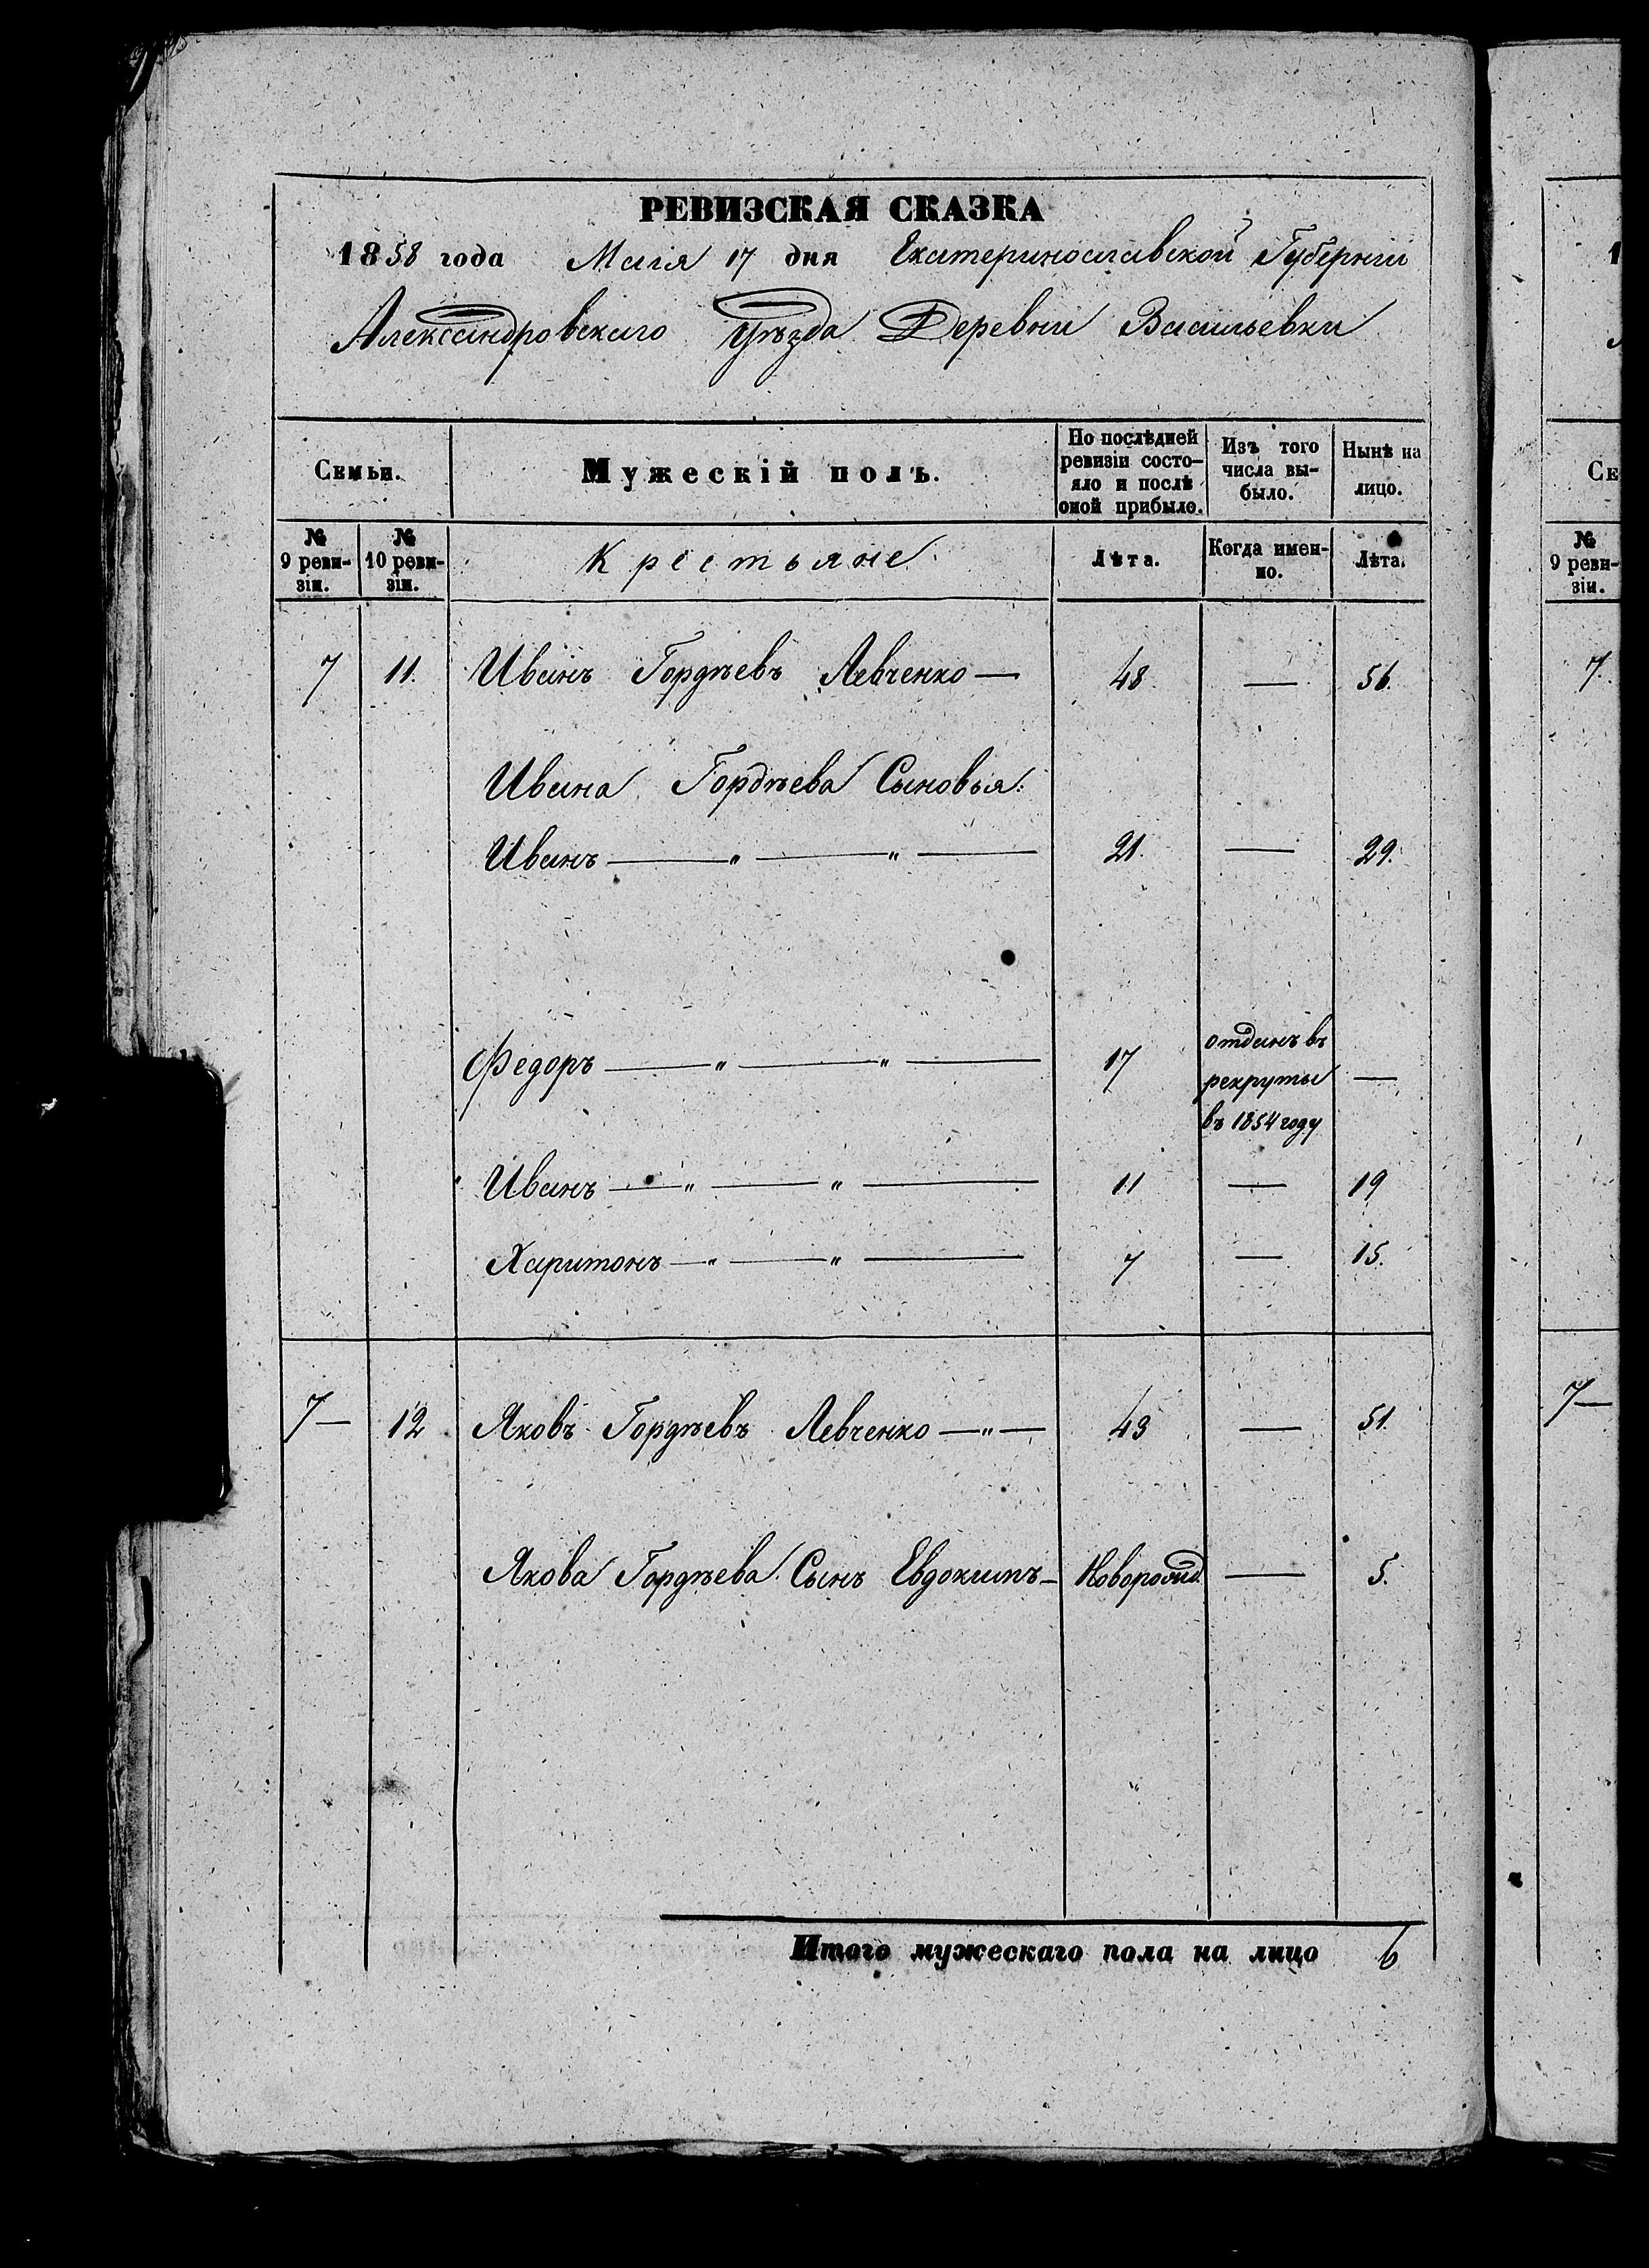 РЕВИЗСКАЯ СКАЗКА
1858 года Маія 17 дня Екатеринославской Губерніи
Александровскаго Уѣзда Деревни Васильевки
Семьи.
Мужескій полъ.
По послѣдней ревизіи состо-
яло и послѣ
оной прибыло.
Изъ того
числа вы-
было.
Нынѣ на
лицо.
№
9 реви-
зіи.
№
10 реви-
зіи.
Крестьяне
Лѣта.
Когда имен-
но.
Лѣта.
7 11. Иванъ Гордѣевъ Левченко — 48 — 56.
Ивана Гордѣева Сыновья:
Иванъ — " — " — 21. — 29.
Федоръ — " — " — 17 отданъ въ
рекруты —
въ 1854 году
Иванъ — " — " — 11 — 19
Харитонъ — " — " — 7 — 15.
7— 12 Яковъ Гордѣевъ Левченко — " — 43 — 51.
Якова Гордѣева Сынъ Евдокимъ — Новорожд. — 5.
Итого мужескаго пола на лицо 6
1
Се
№
9 реви-
зіи.
7.
7—